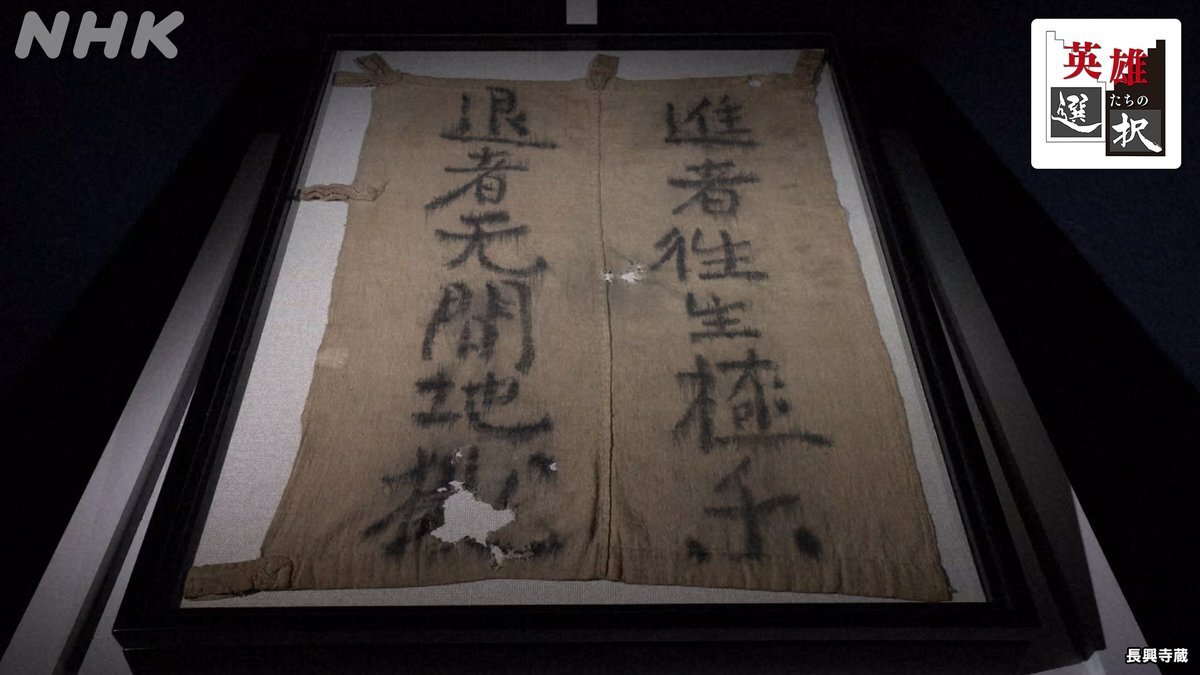 NHK
英雄
たちの
選択
進者往生極乐
退者无間地
長興寺蔵